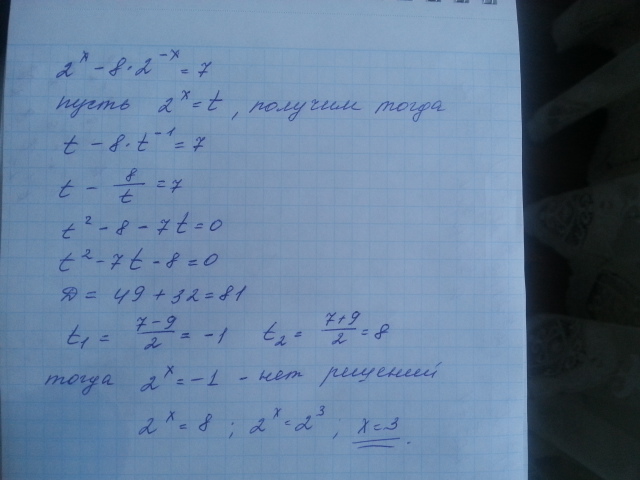 2^x - 8 · 2^-x = 7
пусть 2^x = t, получим тогда
t - 8 · t^-1 = 7
t - 8/t = 7
t^2 - 8 - 7t = 0
t^2 - 7t - 8 = 0
D = 49 + 32 = 81
t1 = (7-9)/2 = -1 t2 = (7+9)/2 = 8
тогда 2^x = -1 - нет решений
2^x = 8 ; 2^x = 2^3 ; x = 3.